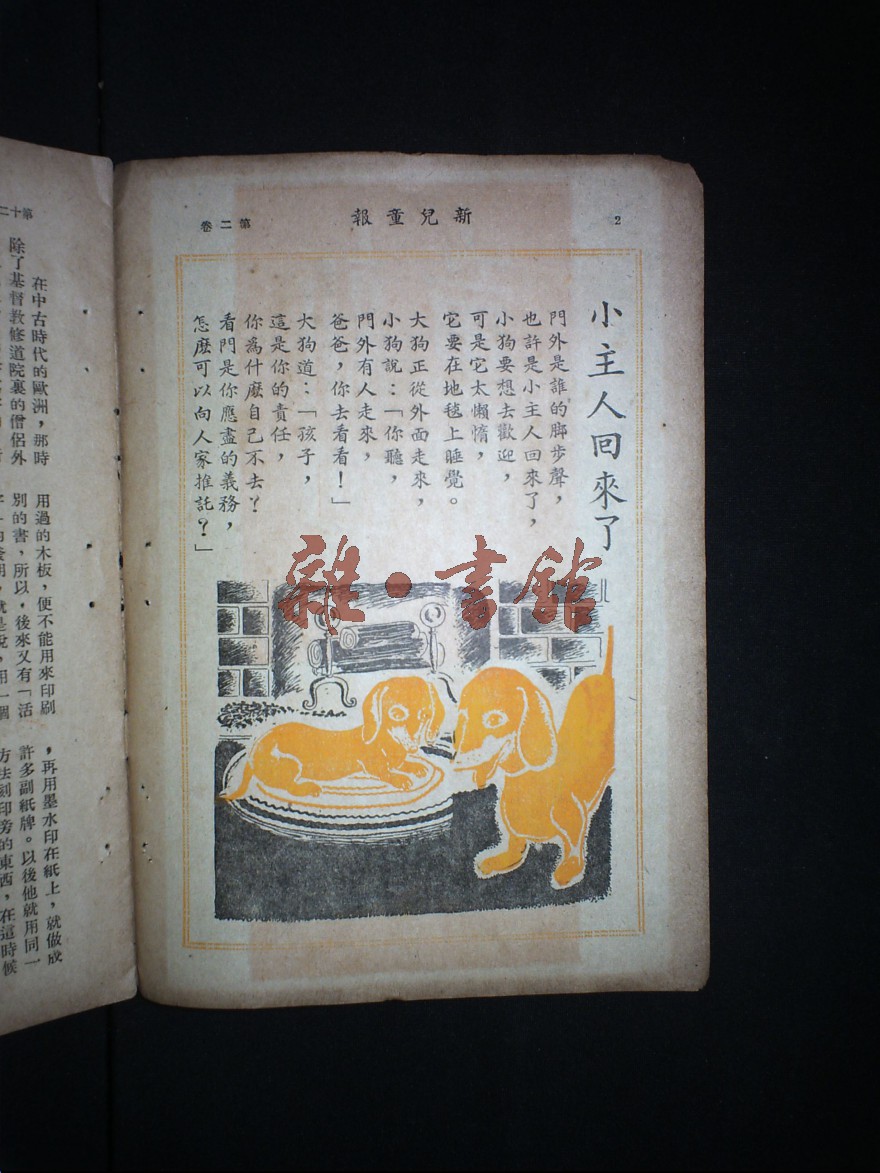 2
新兒童報
第二卷
小主人回來了
門外是誰的脚步聲，
也許是小主人回來了，
小狗要想去歡迎，
可是它太懶惰，
它要在地毯上睡覺。
大狗正從外面走來，
小狗說：「你聽，
門外有人走來，
爸爸，你去看看！」
大狗道：「孩子，
這是你的責任，
你爲什麽自己不去？
看門是你應盡的義務，
怎麽可以向人家推託？」
雜·書館
第十二
在中古時代的歐洲，那時
除了基督教修道院裏的僧侶外
用過的木板，便不能用來印刷
別的書，所以，後來又有「活
，再用墨水印在紙上，就做成
許多副紙牌。以後他就用同一
方法刻印旁的東西，在這時候